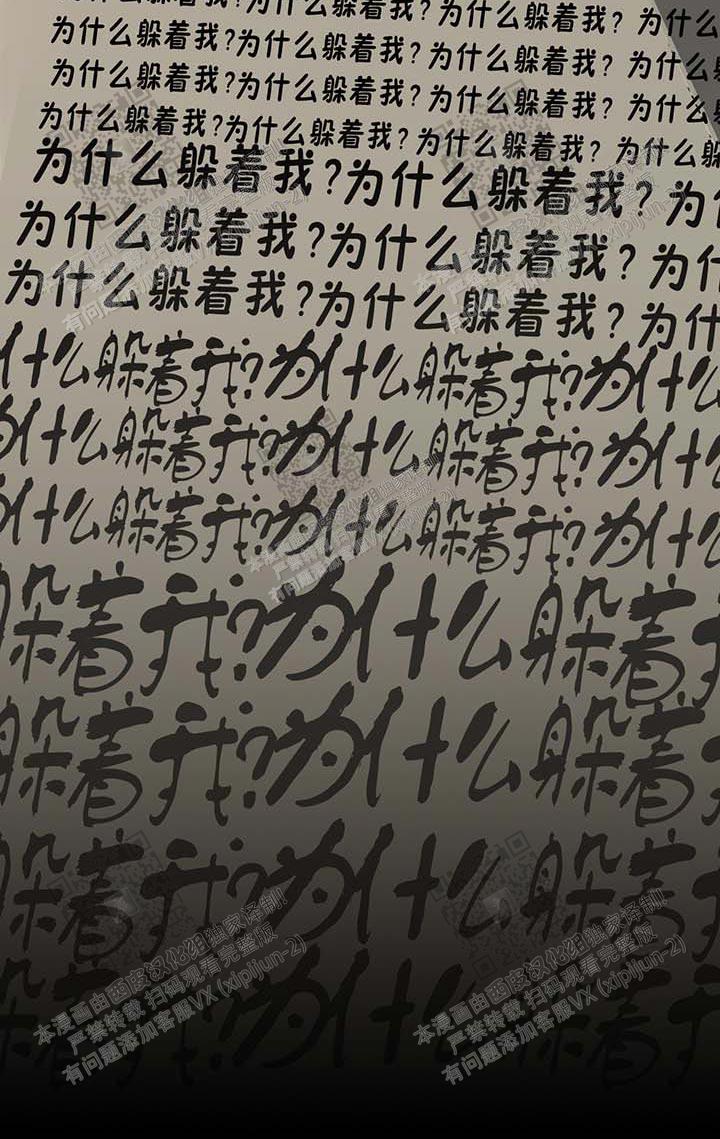 为什么躲着我?为什么躲着我?为什么躲着我? 为什么
为什么躲着我?为什么躲着我?为什么躲着我? 为什么躲
为什么躲着我?为什么躲着我?为什么躲着我? 为什么
为什么躲着我?为什么躲着我? 为什么躲着我? 为什么躲
为什么躲着我?为什么躲着我? 为什
为什么躲着我?为什么躲着我? 为什
为什么躲着我?为什么躲着我? 为什
什么躲着我?为什么躲着我?为什么
为什么躲着我?为什么躲着我?为什么
为什么躲着我?为什么躲着我?为什么
躲着我?为什么躲着
躲着我?为什么躲着
躲着我?为什么躲着
躲着我?为什么躲着我
本漫画由西皮汉化组独家译制!
严禁转载 扫码观看完整版
有问题添加客服VX (xipijun-2)
本漫画由西皮汉化组独家译制!
严禁转载 扫码观看完整版
有问题添加客服VX (xipijun-2)